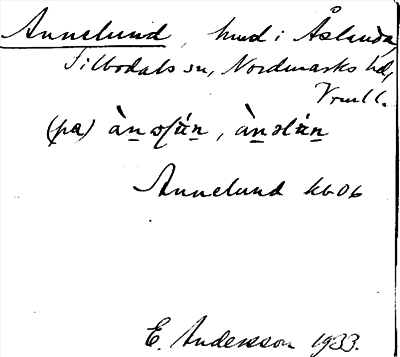 Annelund, hmd i Åslanda,
Silbodals sn, Nordmarks hd,
Vrml.
(på) àn̲əʃún̲, àn̲əlún̲
Annelund kb 06
E. Andersson 1933.